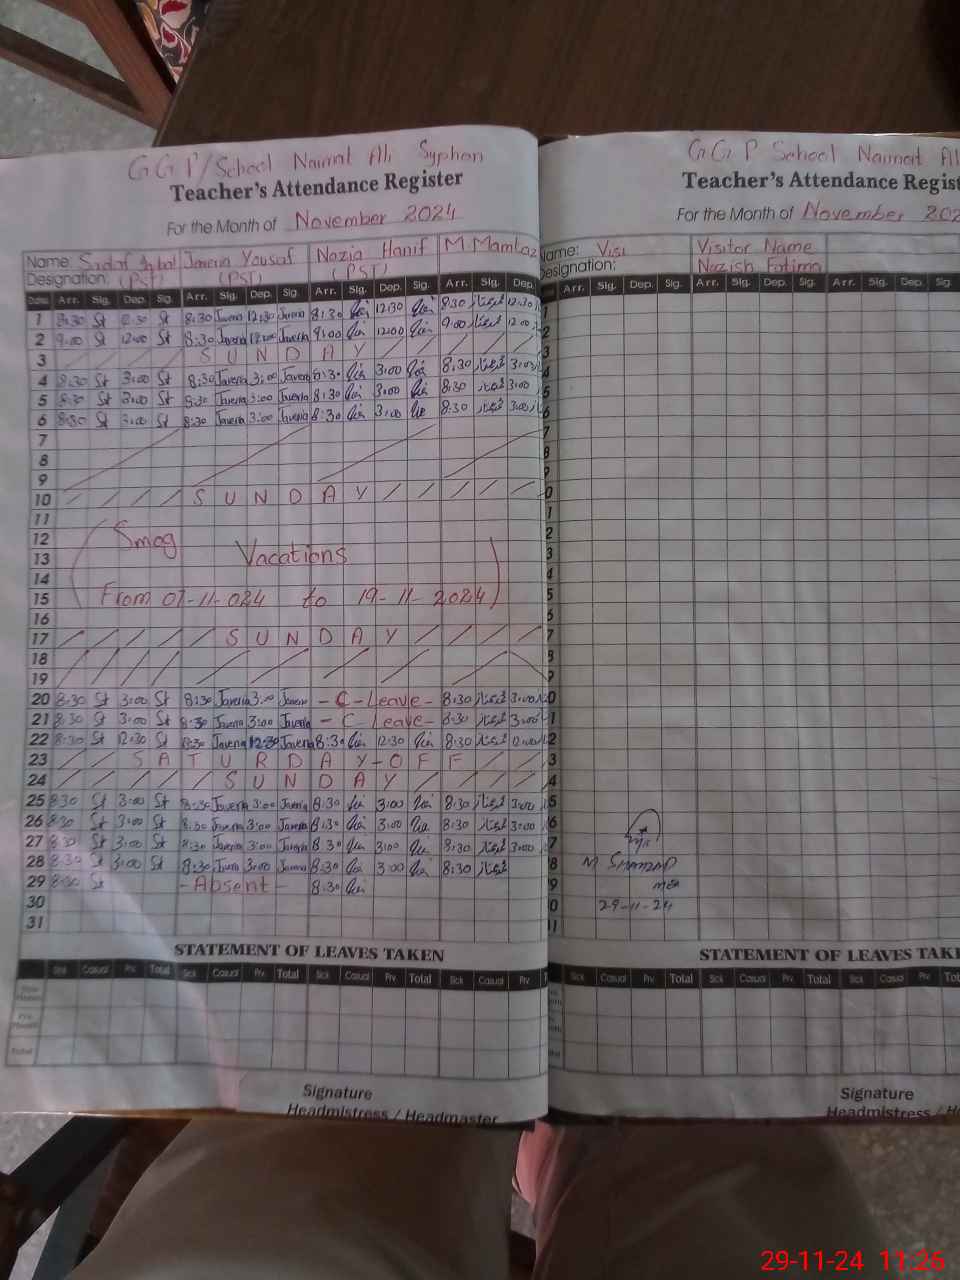 GGP/School Naimat Ali Syphan
Teacher's Attendance Register
For the Month of November 2024
Name: Sadaf Iqbal Javeria Yousaf Nazia Hanif M.Mamtaz
Designation: (PST) (PST) (PST)
Dates Arr. Sig. Dep. Sig. Arr. Sig. Dep. Sig. Arr. Sig. Dep. Sig. Arr. Sig. Dep.
1 8:30 St 12:30 St 8:30 Javeria 12:30 Javeria 8:30 12:30 8:30 ممتاز 12:30
2 9:00 St 12:00 St 8:30 Javeria 12:00 Javeria 9:00 12:00 9:00 ممتاز 12:00
3 SUNDAY
4 8:30 St 3:00 St 8:30 Javeria 3:00 Javeria 8:30 3:00 8:30 ممتاز 3:00
5 8:30 St 3:00 St 8:30 Javeria 3:00 Javeria 8:30 3:00 8:30 ممتاز 3:00
6 8:30 St 3:00 St 8:30 Javeria 3:00 Javeria 8:30 3:00 8:30 ممتاز 3:00
7
8
9
10 SUNDAY
11
12 Smog
13 Vacations
14
15 From 07-11-024 to 19-11-2024
16
17 SUNDAY
18
19
20 8:30 St 3:00 St 8:30 Javeria 3:00 Javeria - C - Leave - 8:30 ممتاز 3:00
21 8:30 St 3:00 St 8:30 Javeria 3:00 Javeria - C - Leave - 8:30 ممتاز 3:00
22 8:30 St 12:30 St 8:30 Javeria 12:30 Javeria 8:30 12:30 8:30 ممتاز
23 SATURDAY-OFF
24 SUNDAY
25 8:30 St 3:00 St 8:30 Javeria 3:00 Javeria 8:30 3:00 8:30 ممتاز 3:00
26 8:30 St 3:00 St 8:30 Javeria 3:00 Javeria 8:30 3:00 8:30 ممتاز 3:00
27 8:30 St 3:00 St 8:30 Javeria 3:00 Javeria 8:30 3:00 8:30 ممتاز 3:00
28 8:30 St 3:00 St 8:30 Javeria 3:00 Javeria 8:30 3:00 8:30 ممتاز
29 8:30 St - Absent - 8:30
30
31
STATEMENT OF LEAVES TAKEN
Sick Casual Prv. Total Sick Casual Prv. Total Sick Casual Prv. Total Sick Casual Prv
This Month
Pre. Month
Total
Signature
Headmistress / Headmaster
GGP School Naimat Al
Teacher's Attendance Regist
For the Month of November 202
Name: Visi Visitor Name
Designation: Nazish Fatima
Arr. Sig. Dep. Sig. Arr. Sig. Dep. Sig. Arr. Sig. Dep. Sig.
29-11-24
STATEMENT OF LEAVES TAK
Sick Casual Prv. Total Sick Casual Prv. Total Sick Casual Prv. Tot
Signature
Headmistress / H
29-11-24 11:26